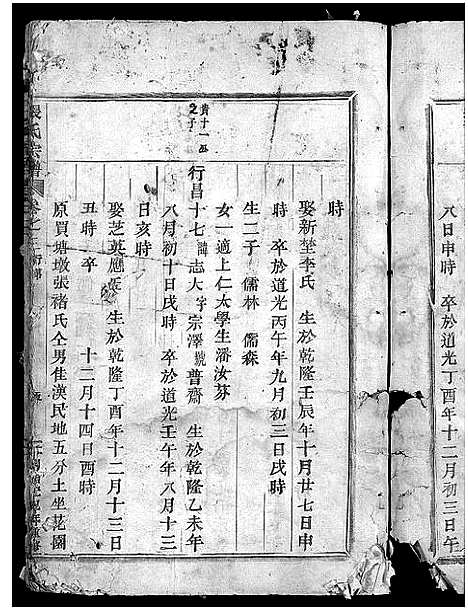 八日申時 卒於道光丁酉年十二月初三日午
時
娶新塋李氏 生於乾隆壬辰年十月廿七日申
時 卒於道光丙午年九月初三日戌時
生二子 儒林 儒森
女一適上仁太學生潘汝芬
貴十一公
之子
行昌十七 諱志大 字宗澤 號普齋 生於乾隆乙未年
八月初十日戌時 卒於道光壬午年八月十三
日亥時
娶芝英應氏 生於乾隆丁酉年十二月十三日
丑時 卒 十二月十四日酉時
原買塘墩張褚氏仝男佳漢民地五分土坐花園
氏宗譜 卷之